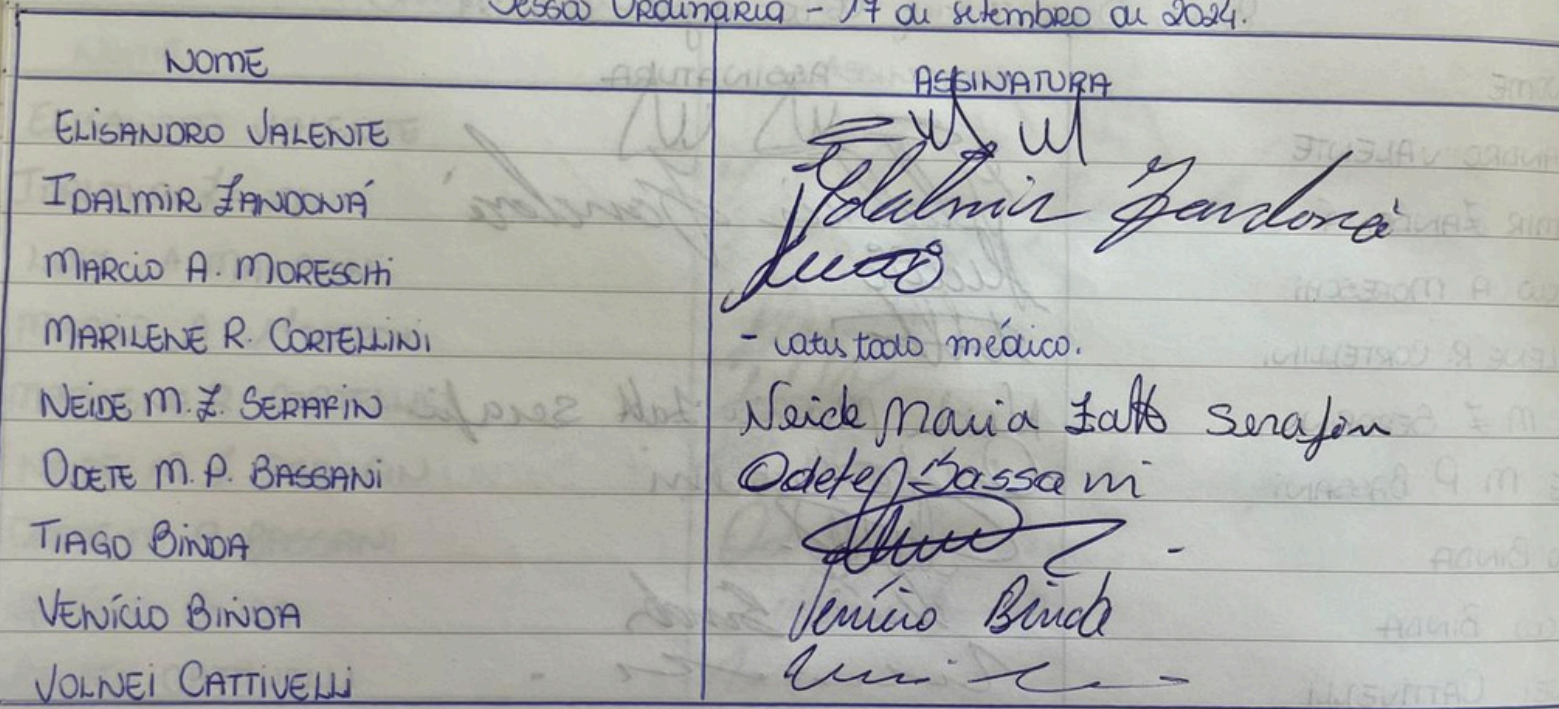 Sessão Ordinária - 17 de setembro de 2024.
NOME ASSINATURA
ELISANDRO VALENTE
IDALMIR ZANDONÁ Idalmir Zandoná
MARCIO A. MORESCHI
MARILENE R. CORTELLINI - médico.
NEIDE M. Z. SERAFIN Neide Maria Zatto Serafin
ODETE M. P. BASSANI Odete P Bassani
TIAGO BINDA
VENÍCIO BINDA Venício Binda
VOLNEI CATTIVELLI